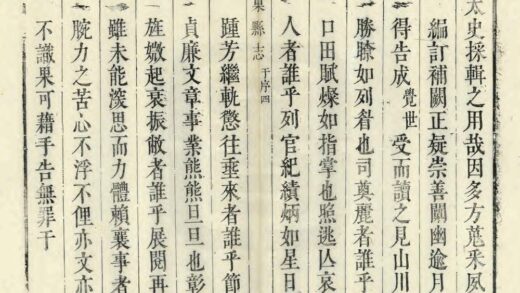 太史採輯之用哉因多方蒐采夙
編訂補闕正疑崇善闡幽逾月
得告成覺世受而讀之見山川
勝瞭如列眉也司奠麗者誰乎
口田賦燦如指掌也賑逃亾哀
人者誰乎列官紀績炳如星日
果縣志 于序四
踵芳繼軌懲往垂來者誰乎節
貞廉文章事業熊熊旦旦也彰
旌媺起衰振敝者誰乎展閱再
雖未能湥思而力體賴襄事者
腕力之苦心不浮不俚亦文亦
不識果可藉手告無罪于